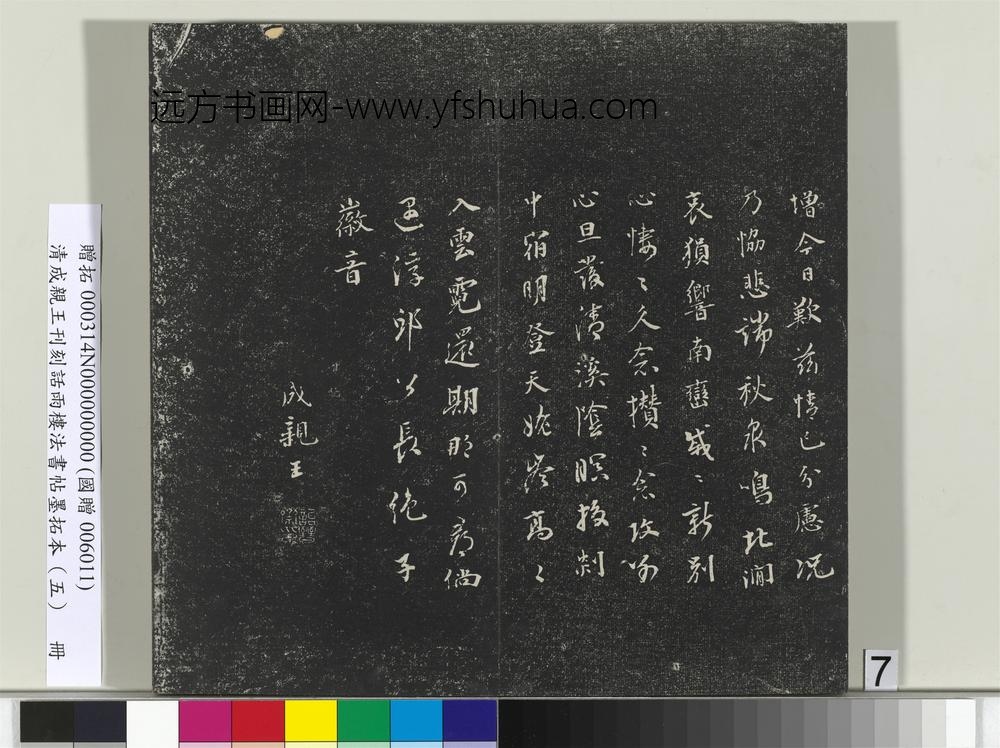 远方书画网-www.yfshuhua.com
增今日歎茲情已分慮況
乃協悲端秋泉鳴北澗
哀猿響南巒戚〻新別
心悽〻久念攢〻念攻別
心旦發清溪陰暝投剡
中宿明登天姥岑高〻
入雲霓還期那可尋倘
遇浮邱公長絕子
徽音
成親王
贈拓 000314N000000000(國贈 006011)
清成親王刊刻話雨樓法書帖墨拓本（五） 冊
7